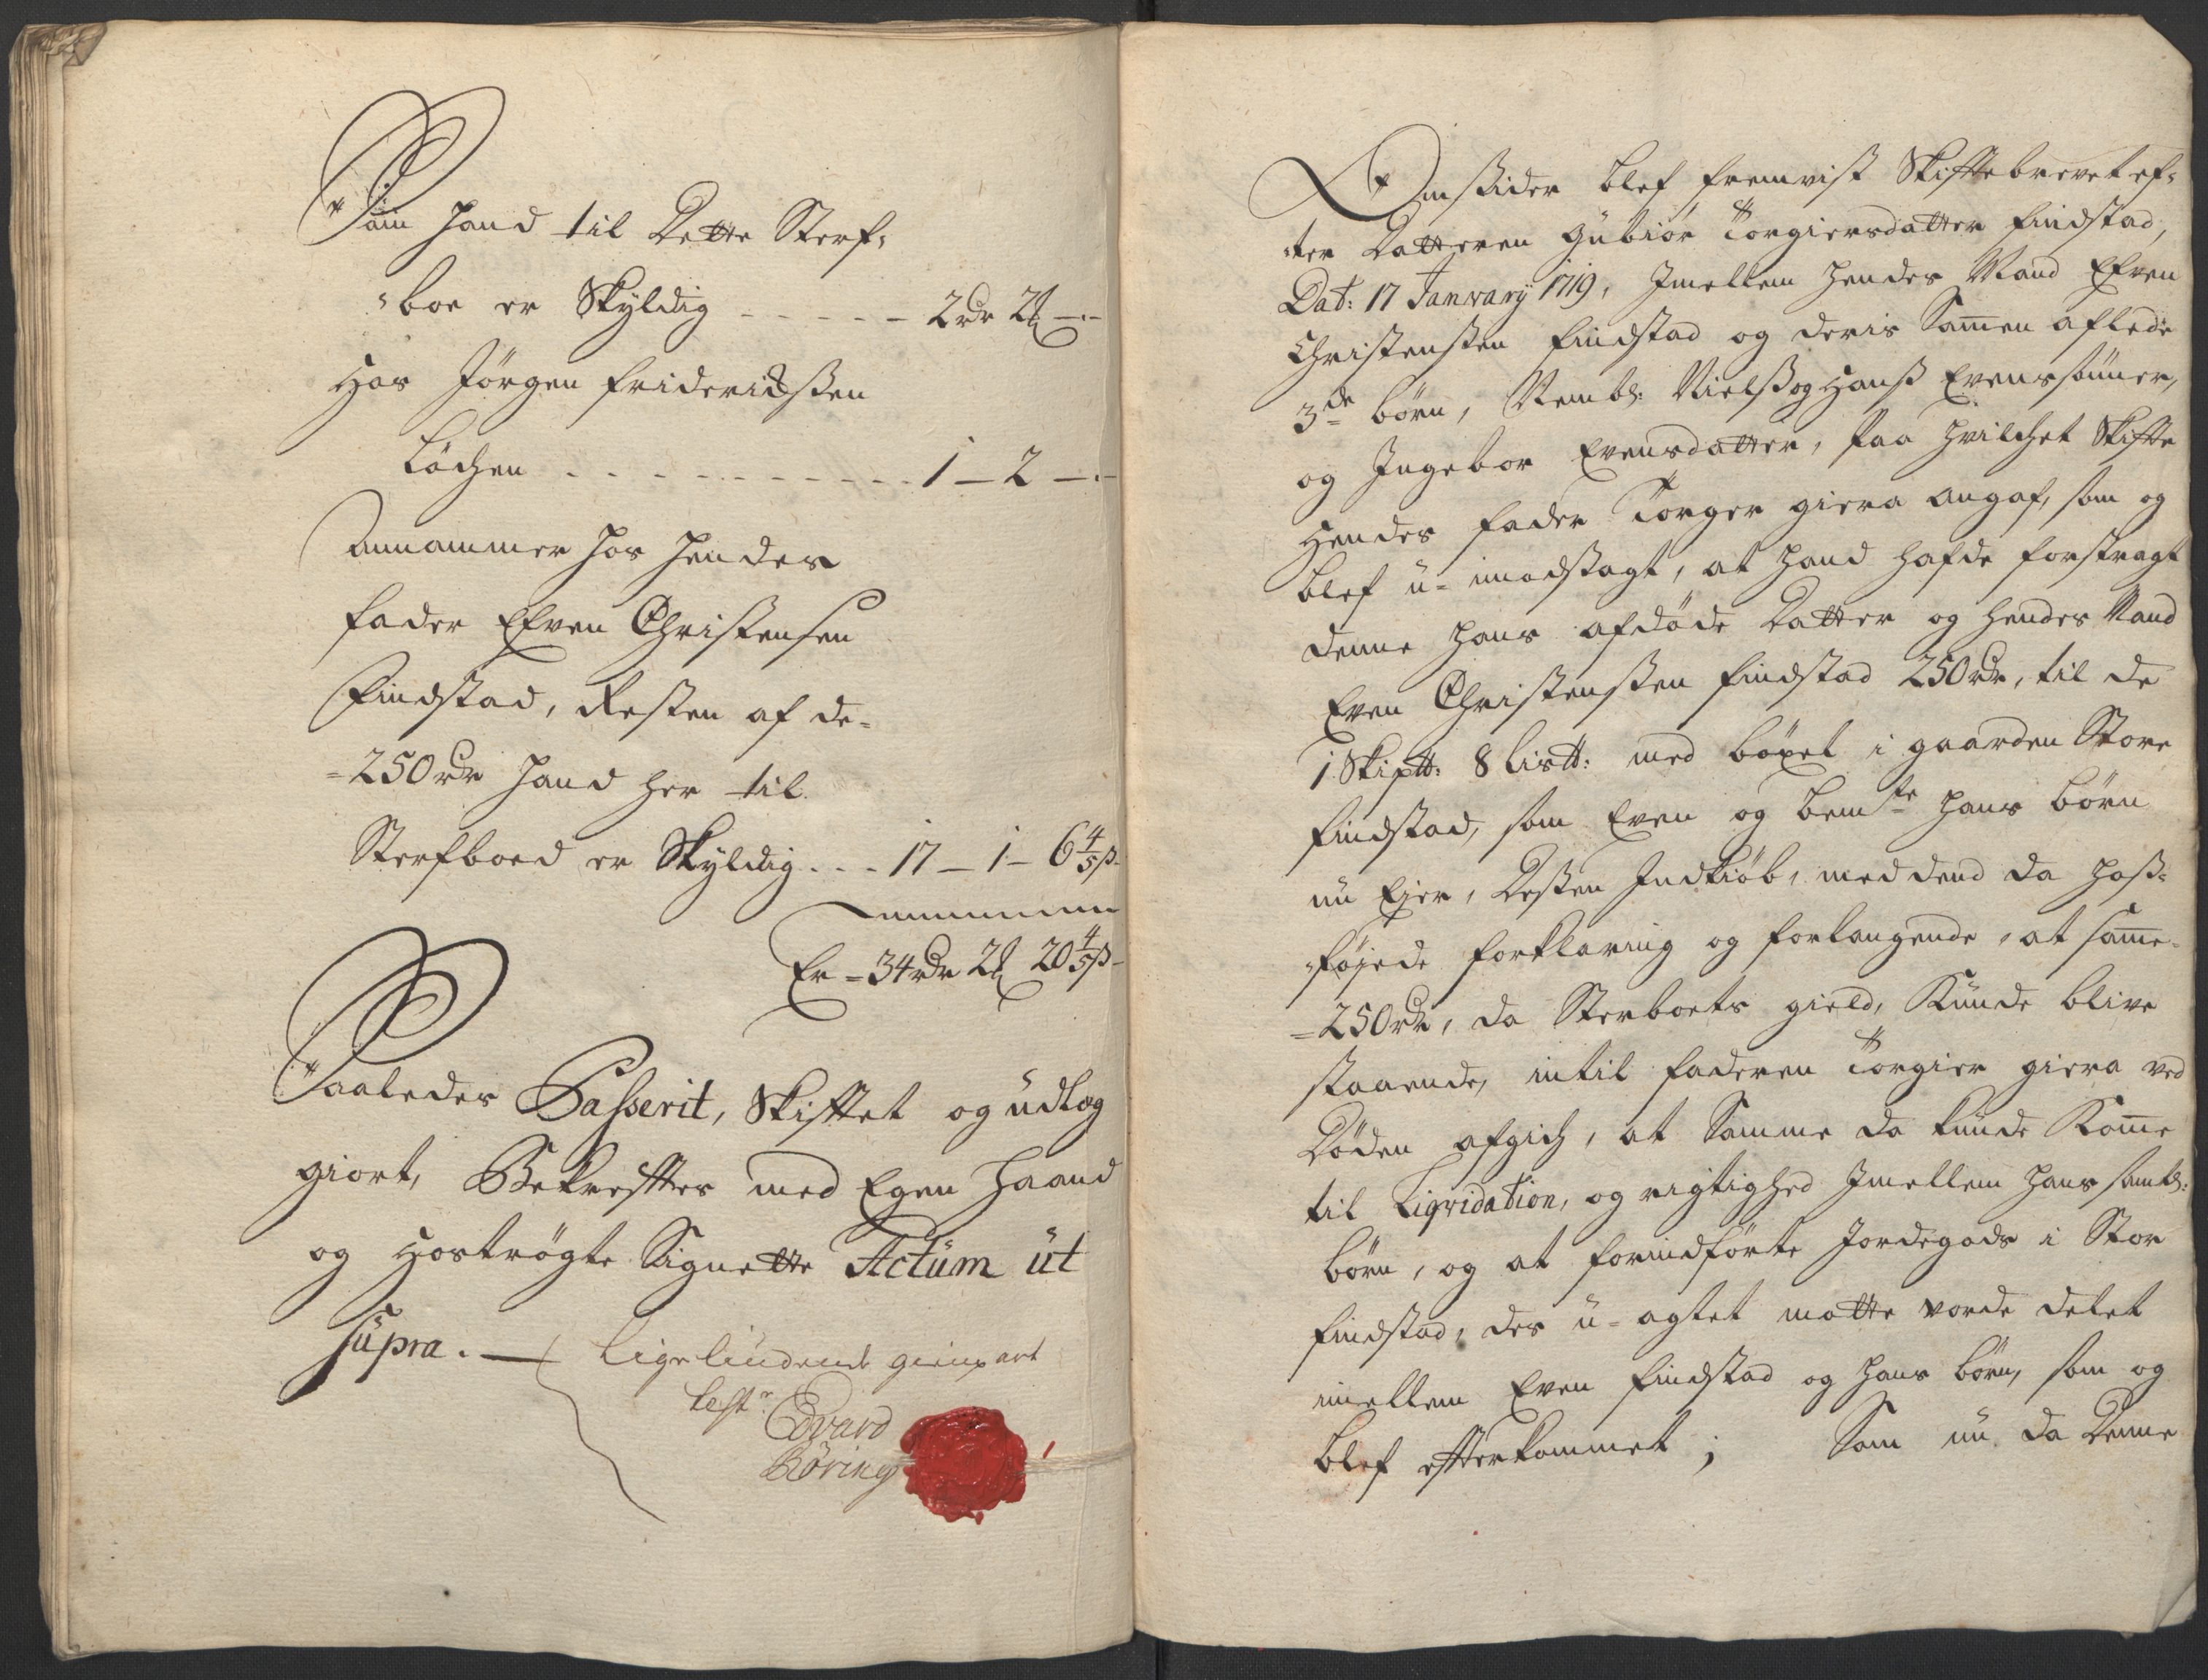 Som hand til Dette Sterf-
boe er Skyldig - - - - - 2rdr 2ß -.-
Hos Jörgen Friderichsen
Löchen - - - - - - - - - 1 - 2 -.-
Annammer hos hendes
fader Efven Christensen
Findstad, Resten af de-
=250rdr hand her til
Sterfboed er Skyldig - - - 17 - 1 - 6 4/5ß-
Er = 34rdr 2 20 4/5ß-
Saaledes Passerit, Skiftet og udlog
giort, Bekrefttes med Egen Haand
og hoströgte Signette Actüm üt
süpra. — Ligelüdende gienpart
test:r Edvard
Röring
Omsider blef fremvist Skiftebrevet ef-
ter Datteren Gübiör Torgiersdatter Findstad,
Dat: 17 Janvarij 1719, Imellem hendes Mand Efven
Christensen Findstad og deris Samen aflede
3de börn, Nembl: Nielß og Hanß Evenssönner,
og Ingebor Evensdatter, Paa hvilchet Skifte
Hendes fader Torger giera angaf, som og
blef ü-imodsagt, at hand hafde forstragt
denne hans afdöde Datter og hendes Mand
Even Christensen Findstad 250rdr, til de
1 Skiptt: 8 Listt: med böxel i gaarden Store
Findstad, som Even og bemte hans börn
nü Ejer, Desten Indkiöb, med dend da hoß-
föjede forklaring og forlangende, at same
=250rdr, da Sterboets gield, Künde blive
staaende, intil faderen Torgier giera ved
Döden afgich, at Samme da künde Kome
til Liqvidation, og rigtighed Imellem hans samtl:
börn, og at forindförte Jordegods i Stor
Findstad, des ü-agtet motte vorde delet
imellem Even Findstad og hans börn, som og
blef efterkommet; Som nü da Denne